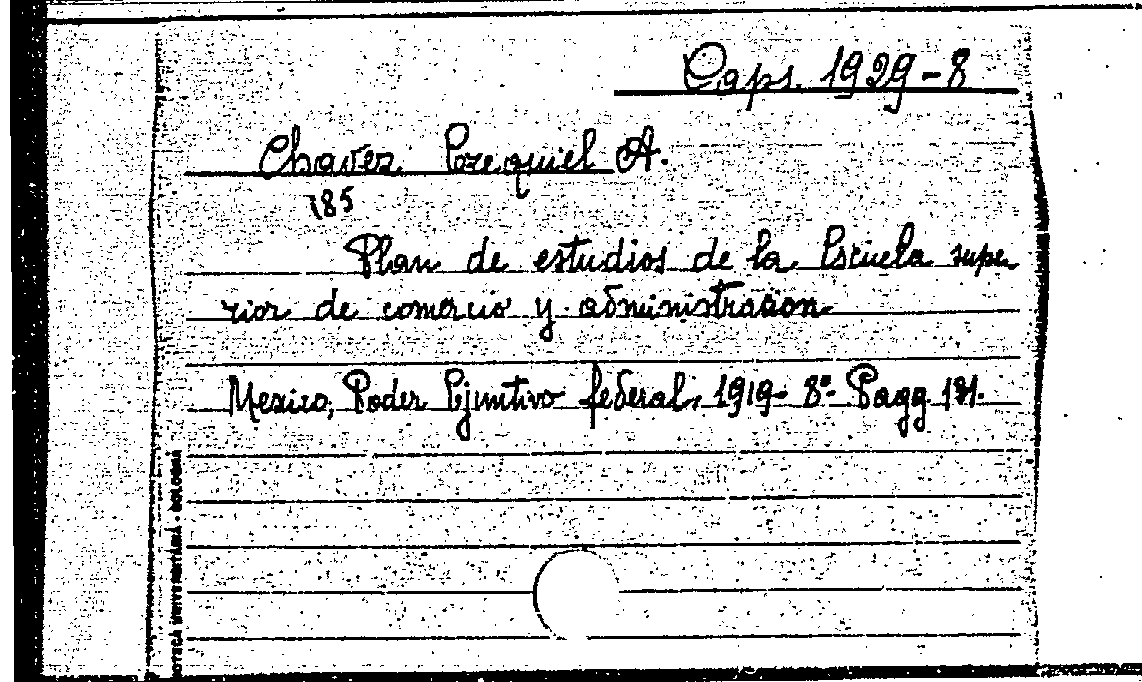 Caps. 1929-8
Chavez Ezequiel A.
185
Plan de estudios de la Escuela supe
rior de comercio y administracion
Mexico, Poder Ejecutivo federal, 1919- 8º- Pagg. 181.
OTECA UNIVERSITARIA - BOLOGNA